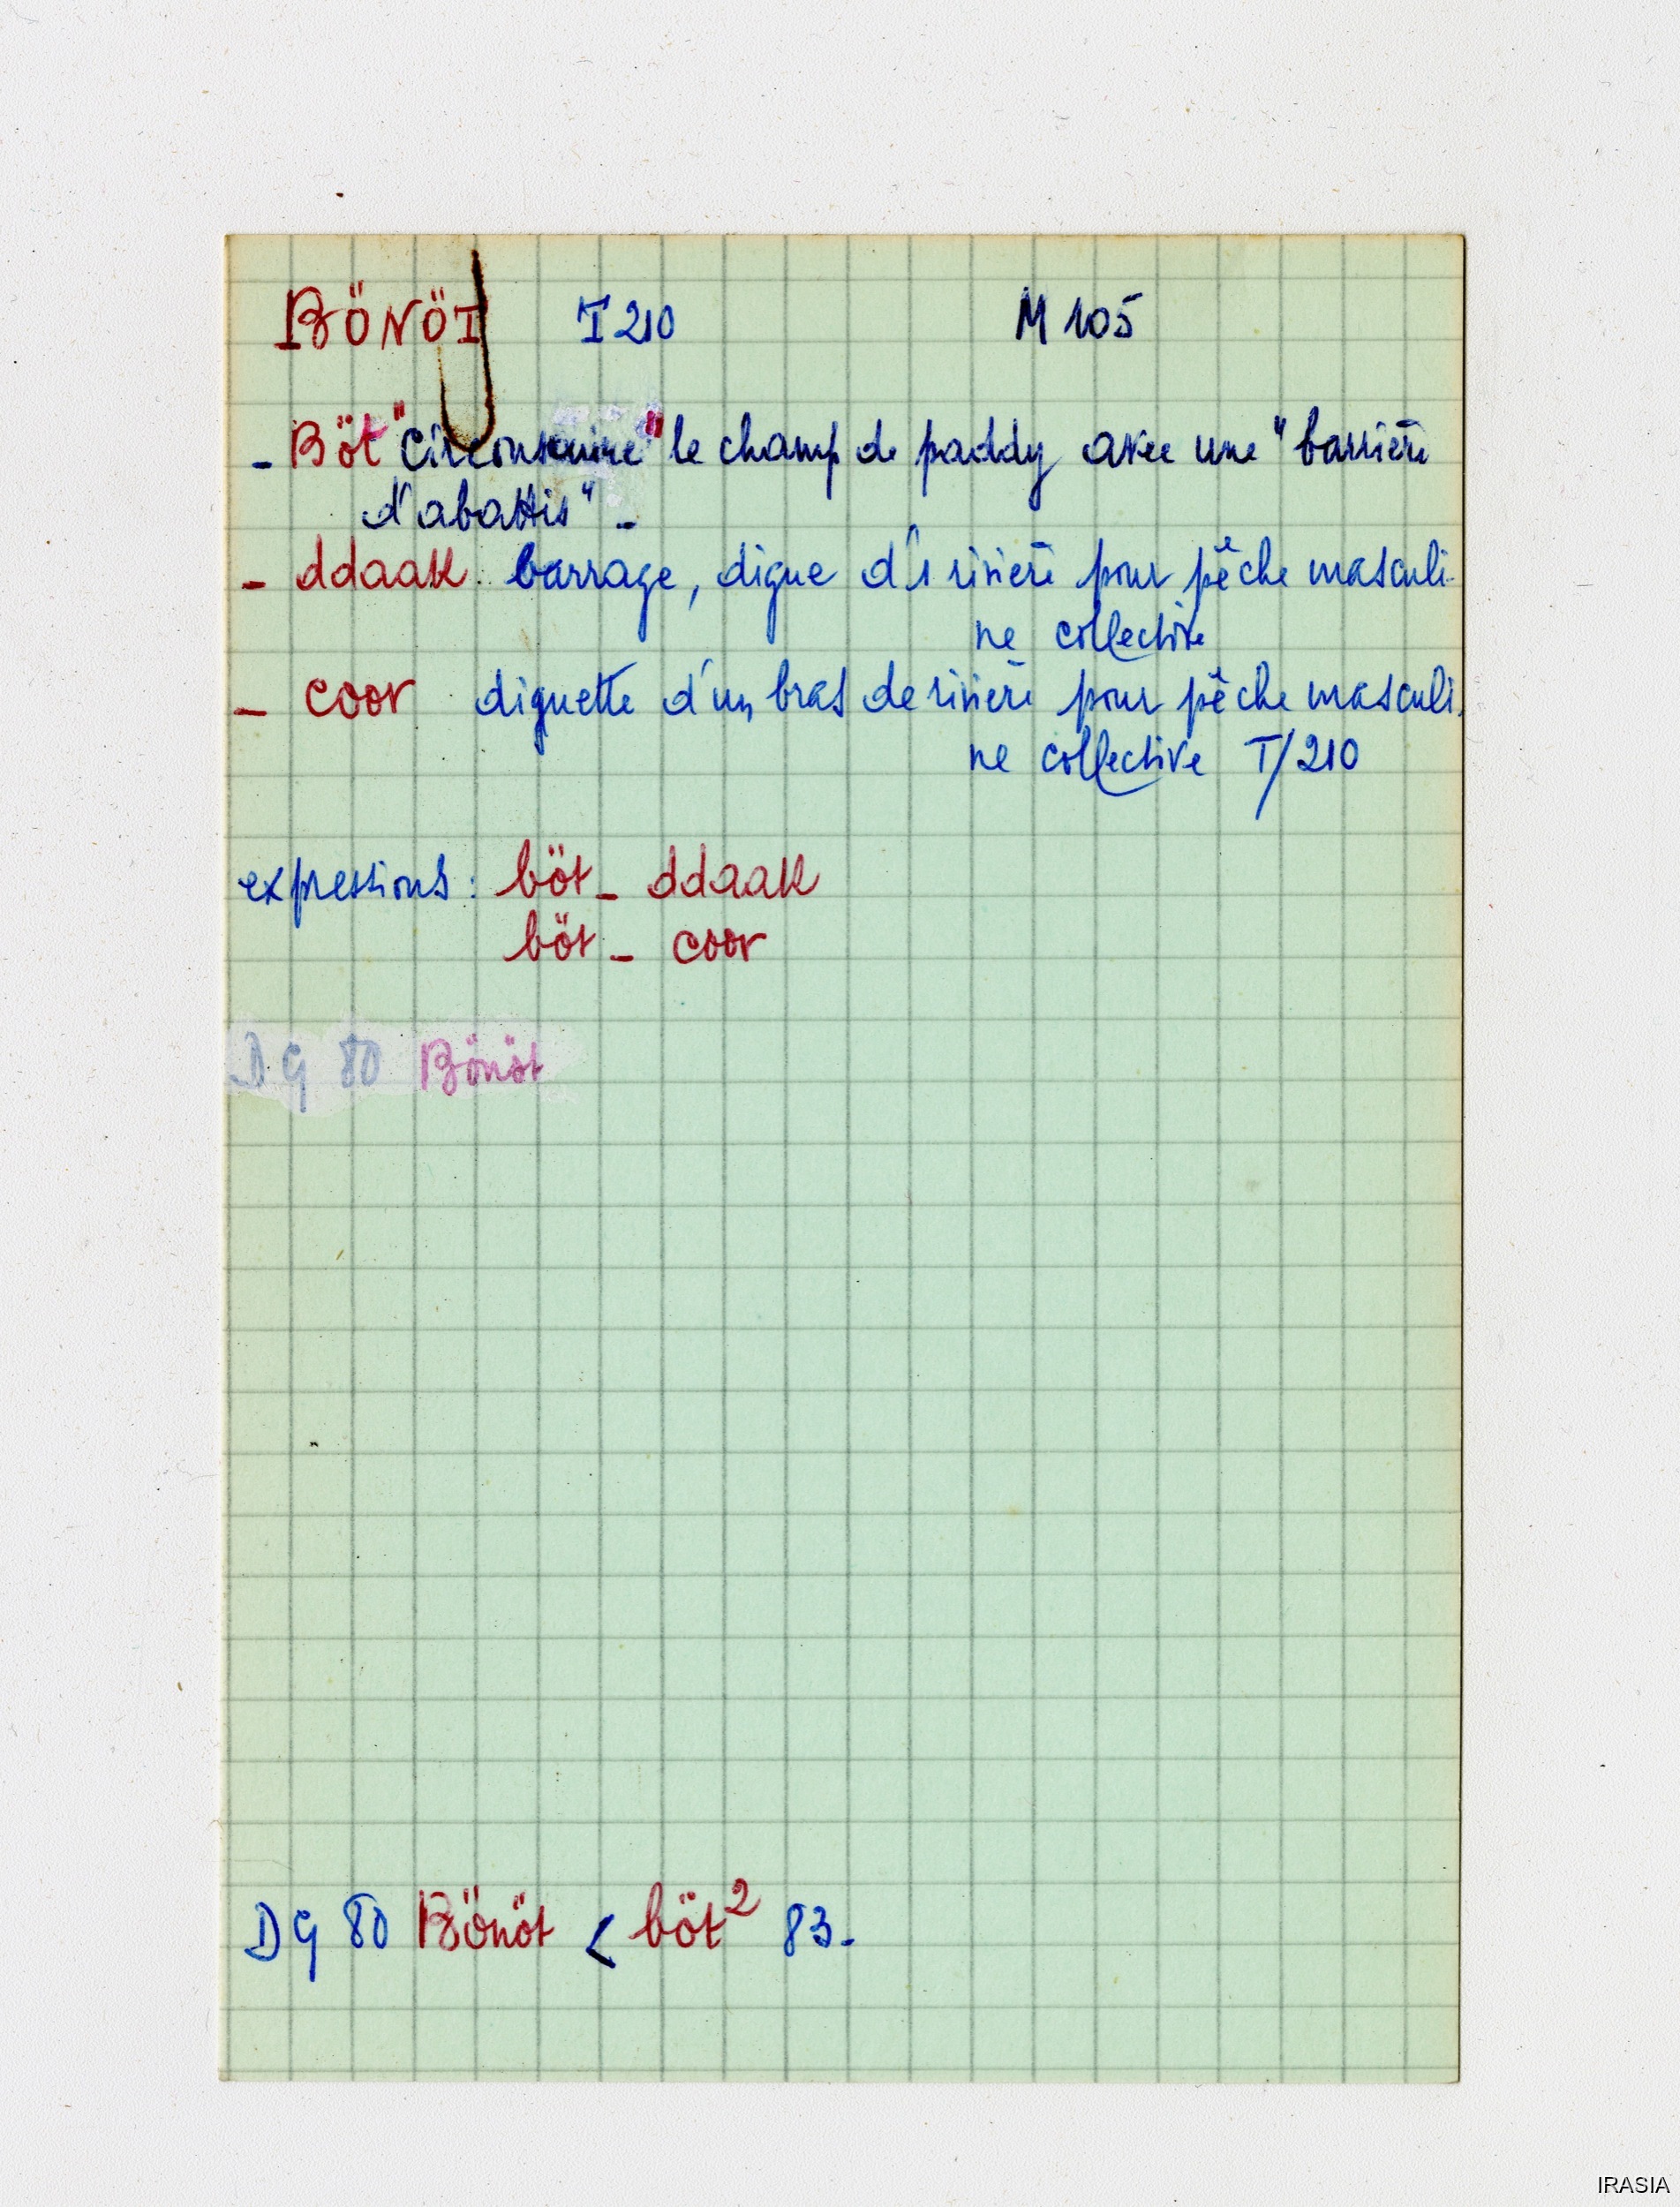 BÖNÖT T 210 M 105
- Böt "circonscrire" le champ de paddy avec une "barrière
d'abattis" -
- ddaak : barrage, digue d'1 rivière pour pêche masculi-
ne collective
- coor diguette d'un bras de rivière pour pêche masculi-
ne collective T/210
expressions : böt - ddaak
böt - coor
DG 80 Bönöt
DG 80 Bönöt < böt² 83 -
IRASIA